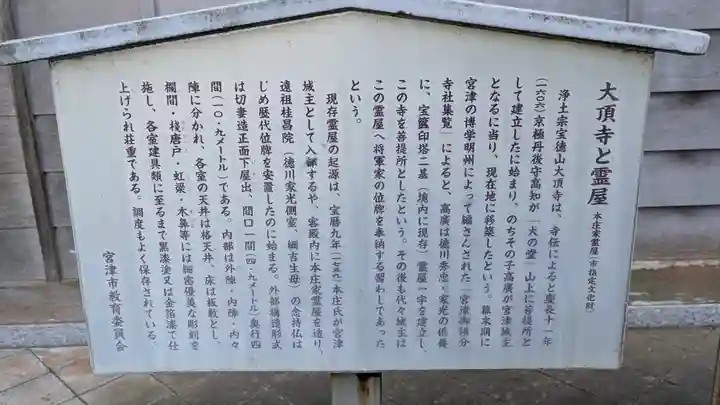 大頂寺と霊屋 本庄家霊屋(市指定文化財)
浄土宗宝徳山大頂寺は、寺伝によると慶長十一年
(一六〇六)京極丹後守高知が「犬の堂」山上に菩提所と
して建立したに始まり、のちその子高廣が宮津城主
となるに当り、現在地に移築したという。幕末期に
宮津の博学明州によって編さんされた「宮津御領分
寺社集覧」によると、高廣は徳川秀忠・家光の位牌
に、宝篋印塔二基(境内に現存)霊屋一宇を建立し、
この寺を菩提所としたという。その後も代々城主は
この霊屋へ将軍家の位牌を奉納する習わしであった
という。
現存霊屋の起源は、宝暦九年(一七五九)本庄氏が宮津
城主として入部するや、客殿内に本庄家霊屋を造り、
遠祖桂昌院(徳川家光側室、綱吉生母)の念持仏は
じめ歴代位牌を安置したのに始まる。外部構造形式
は切妻造正面下屋出、間口一間(四・九メートル)奥行四
間(一〇・九メートル)である。内部は外陣・内陣・内々
陣に分かれ、各室の天井は格天井、床は板敷とし、
欄間・桟唐戸・虹梁・木鼻等には細密優美な彫刻を
施し、各室建具類に至るまで黒漆塗又は金箔漆で仕
上げられ荘重である。調度もよく保存されている。
宮津市教育委員会